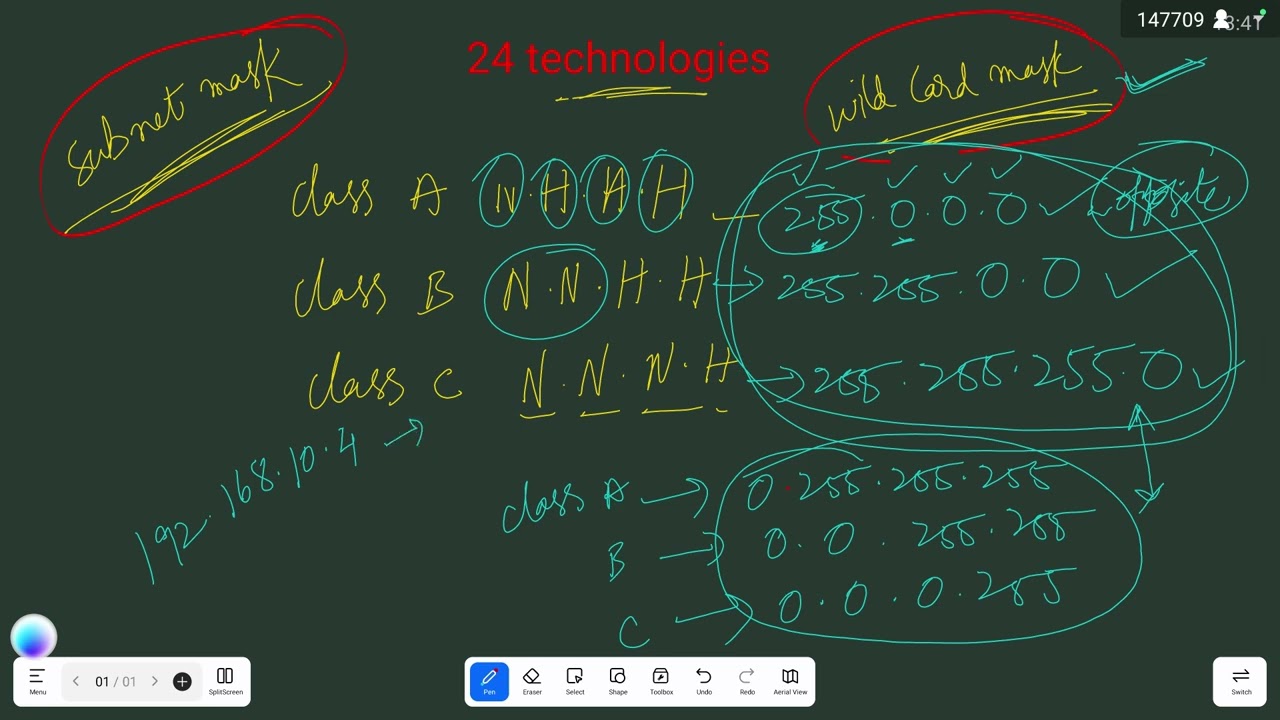 147709 13:41
24 technologies
Subnet mask
Wild Card mask
Class A N.H.H.H 255.0.0.0 opposite
Class B N.N.H.H → 255.255.0.0
Class C N.N.N.H → 255.255.255.0
192.168.10.4 →
Class A → 0.255.255.255
B → 0.0.255.255
C → 0.0.0.255
Menu
01 / 01
SplitScreen
Pen
Eraser
Select
Shape
Toolbox
Undo
Redo
Aerial View
Switch